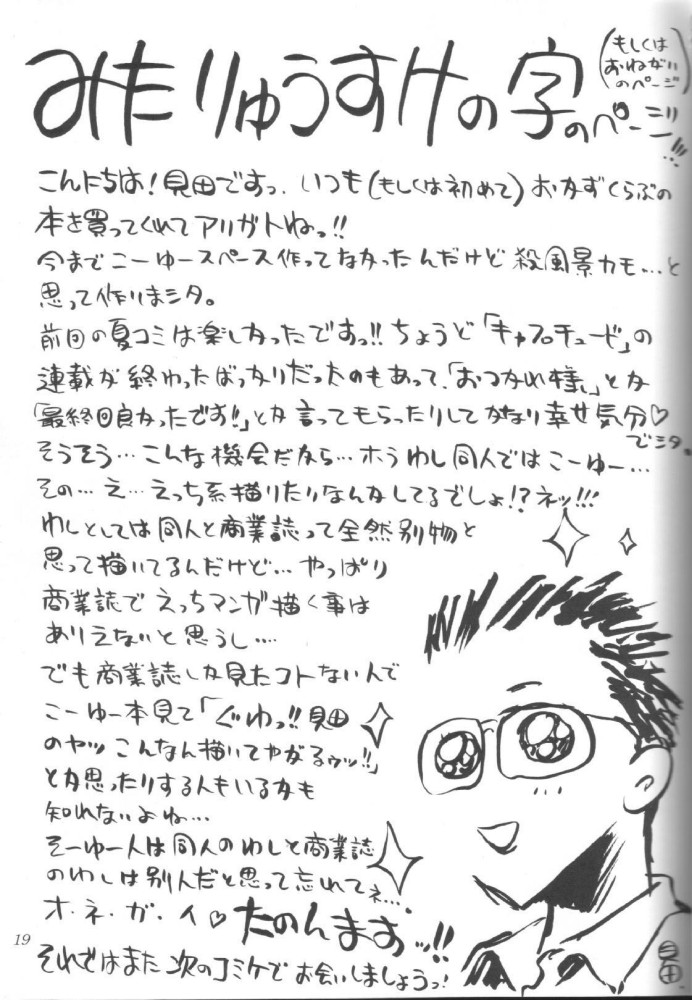 みたりゅうすけの字のページ!!!
(もしくはおねがいのページ)
こんにちは!見田ですっ.いつも(もしくは初めて)おかずくらぶの
本を買ってくれてアリガトねっ!!
今までこーゆースペース作ってなかったんだけど殺風景カモ…と
思って作りまシタ。
前回の夏コミは楽しかったですっ!!ちょうど「キャプロチュード」の
連載が終わったばっかりだったのもあって、「おつかれ様」とか
「最終回良かったです!」とか言ってもらったりしてかなり幸せ気分♡
でシタ。
そうそう…こんな機会だから…ホラわし同人ではこーゆー…
その…え…えっち系描いたりなんかしてるでしょ!?ネッ!!!
わしとしては同人と商業誌って全然別物と
思って描いてるんだけど…やっぱり
商業誌でえっちマンガ描く事は
ありえないと思うし….
でも商業誌しか見たコトない人で
こーゆー本見て「ぐわっ!!見田
のヤツこんなん描いてやがるゥッ!!」
とか思ったりする人もいるかも
知れないよね…
そーゆー人は同人のわしと商業誌
のわしは別人だと思って忘れてネ…
オ・ネ・ガ・イ♡たのんますっ!!
それではまた次のコミケでお会いしましょうっ!
見田
19